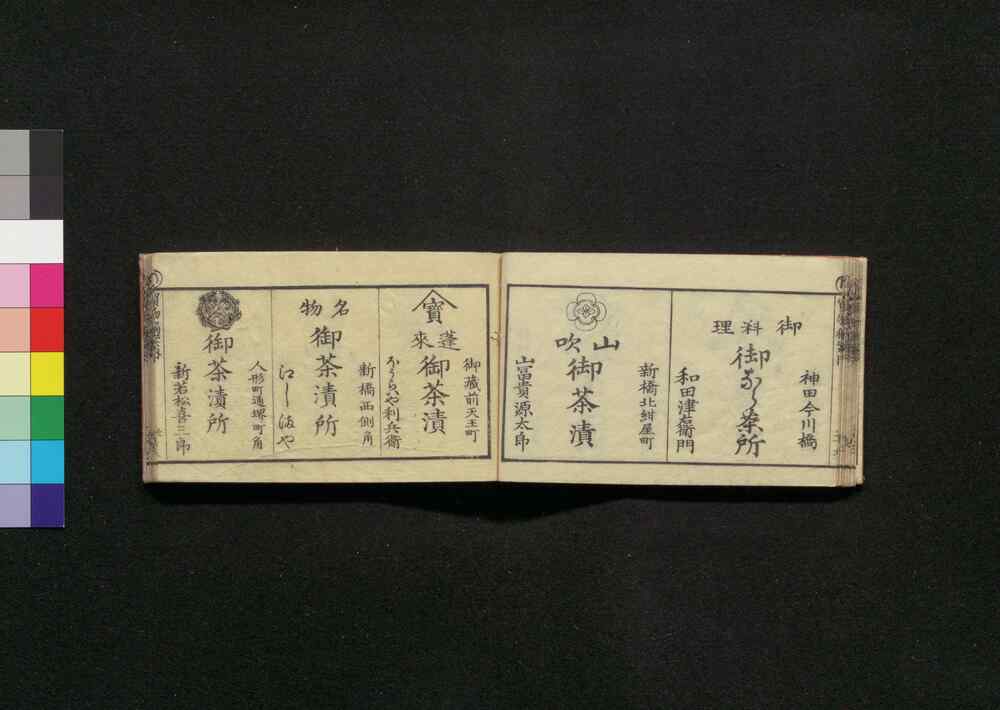 神田今川橋
御料理
御なら茶所
和田津右衛門
新橋北紺屋町
山吹
御茶漬
山冨貴源太郎
御蔵前天王町
寳
蓬来
御茶漬
利兵衛
新橋西側角
名物
御茶漬所
人形町通堺町角
御茶漬所
新若松喜三郎